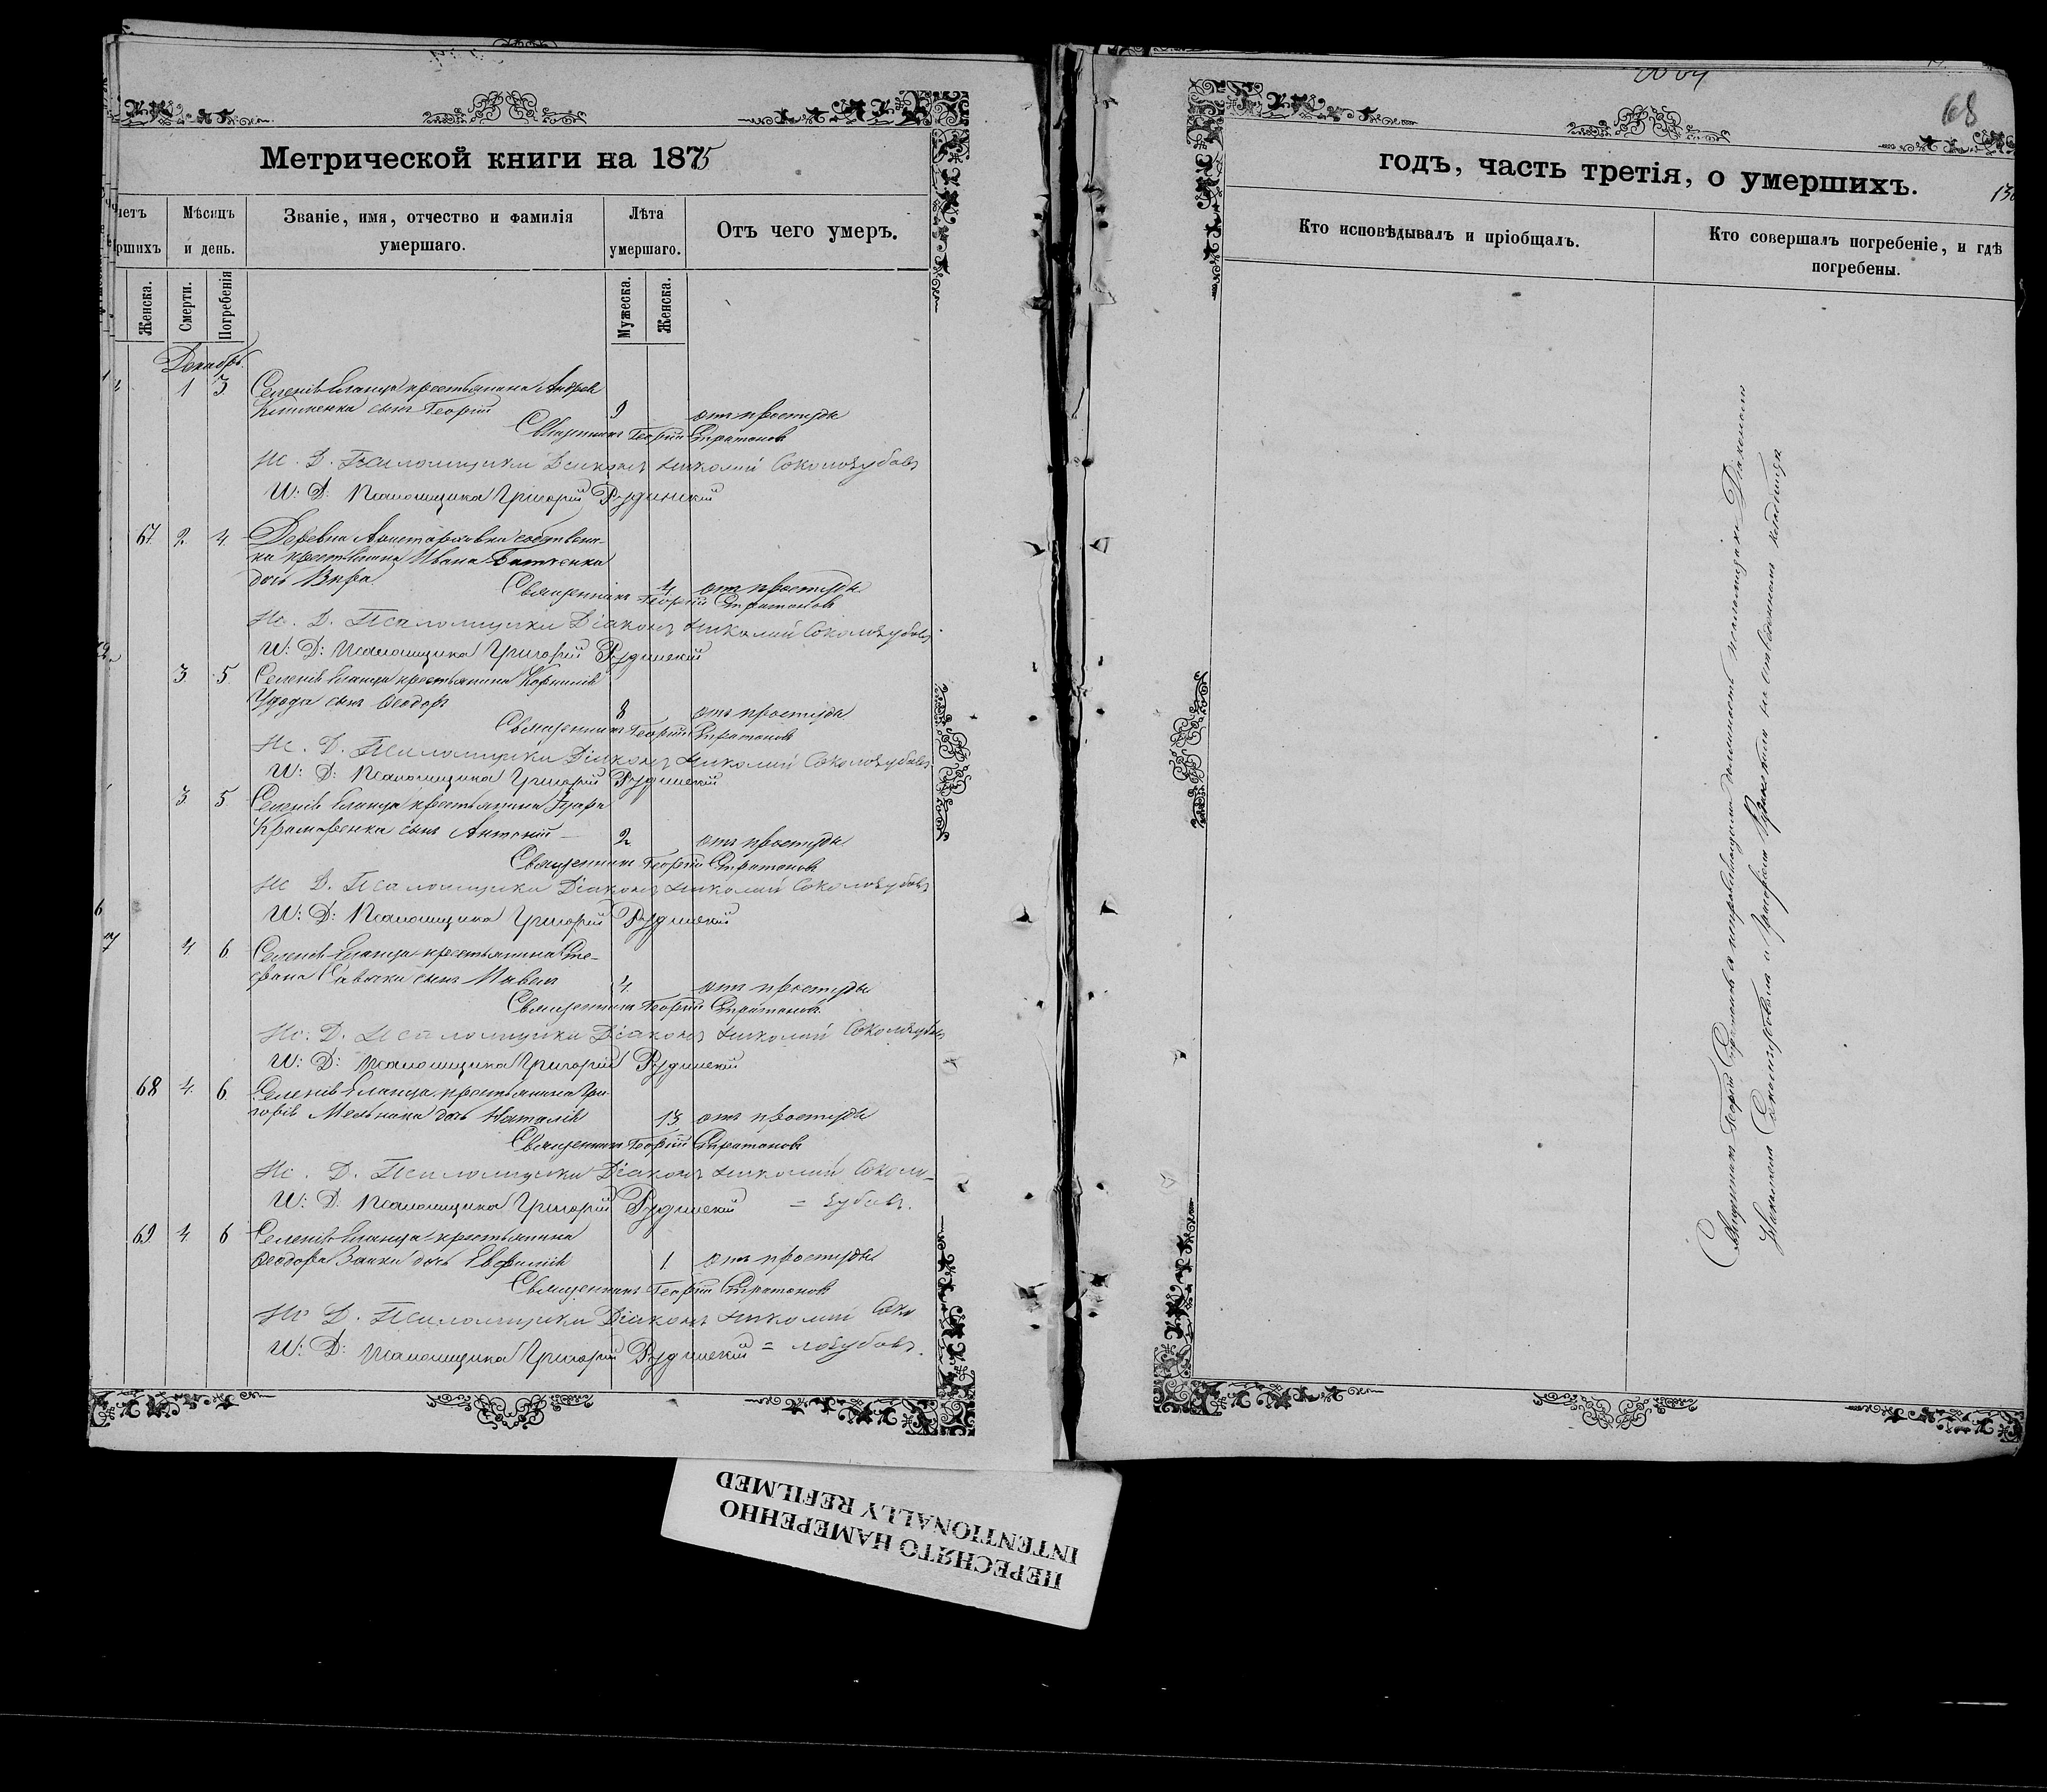 Метрической книги на 1875
Мѣсяцъ и день.
Званіе, имя, отчество и фамилія умершаго.
Лѣта умершаго.
Отъ чего умеръ.
Женска.
Смерти.
Погребенія
Мужеска.
Женска.
Декабрь
1 3 Селенія Еланца крестьянина Андрея
сынъ Георгій 9 отъ простуды
Священникъ Георгій Стратоновъ
И. Д. Псаломщика Діаконъ Николай Соколозубовъ
И: Д: Псаломщика Григорій Рудинскій
67. 2. 4. Деревни собствен-
ка крестьянина Ивана
дочь Вѣра 4 отъ простуды
Священникъ Георгій Стратоновъ
И. Д. Псаломщика Діаконъ Николай Соколозубовъ
И: Д: Псаломщика Григорій Рудинскій
3. 5. Селенія Еланца крестьянина Корнилія
Удода сынъ Ѳеодоръ 8 отъ простуды
Священникъ Георгій Стратоновъ
И. Д. Псаломщика Діаконъ Николай Соколозубовъ
И: Д: Псаломщика Григорій Рудинскій
3. 5. Селенія Еланца крестьянина
Крамаренка сынъ Антоній 2. отъ простуды
Священникъ Георгій Стратоновъ
И. Д. Псаломщика Діаконъ Николай Соколозубовъ
И: Д: Псаломщика Григорій Рудинскій
4. 6. Селенія Еланца крестьянина Сте-
фана Савочки сынъ Павелъ 4. отъ простуды
Священникъ Георгій Стратоновъ
И: Д. Псаломщика Діаконъ Николай Соколозубовъ
И: Д: Псаломщика Григорій Рудинскій
68 4. 6. Селенія Еланца крестьянина Гри-
горія Мельника дочь Наталія 13 отъ простуды
Священникъ Георгій Стратоновъ
И. Д. Псаломщика Діаконъ Николай Соколо-
И: Д. Псаломщика Григорій Рудинскій = зубовъ.
69. 4. 6 Селенія Еланца крестьянина
Ѳеодора Заики дочь Евфимія 1. отъ простуды
Священникъ Георгій Стратоновъ
И. Д. Псаломщика Діаконъ Николай Соко
И: Д: Псаломщика Григорій Рудинскій = лозубовъ.
68
годъ, часть третія, о умершихъ.
Кто исповѣдывалъ и пріобщалъ.
Кто совершалъ погребеніе, и гдѣ погребены.
Священникъ Георгій Стратоновъ съ исправляющими должность псаломщика Діакономъ
Николаемъ Соколозубовымъ и Григоріемъ Рудинскимъ на отведенномъ кладбищѣ
ПЕРЕСНЯТО НАМЕРЕННО
INTENTIONALLY REFILMED